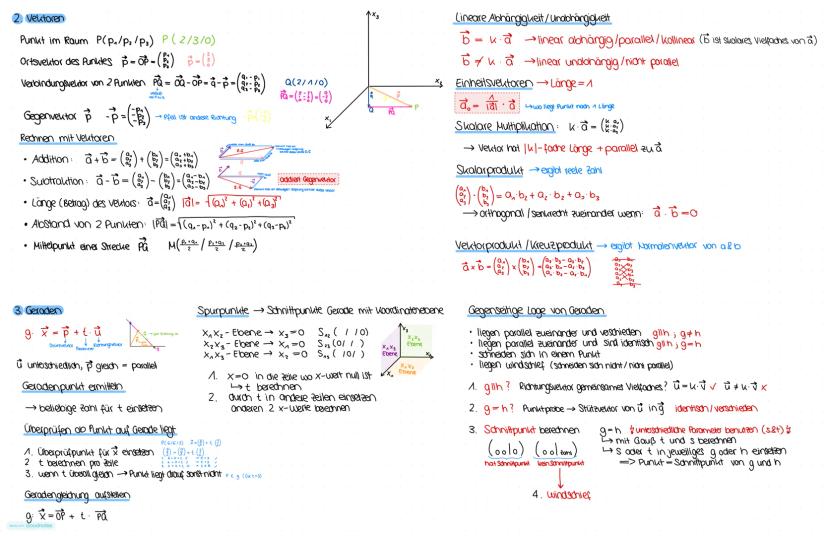 2. Vektoren
Punkt im Raum P(p₁/p₂/p₃) P(2/3/0)
Ortsvektor des Punktes p⃗ = OP⃗ = (p₁ p₂ p₃)
Verbindungsvektor von 2 Punkten PQ⃗ = OQ⃗ - OP⃗ = q⃗ - p⃗ = (q₁-p₁ q₂-p₂ q₃-p₃)
Q(2/1/0)
Gegenvektor p⃗ -p⃗ = (-p₁ -p₂ -p₃) → Pfeil ist andere Richtung
Rechnen mit Vektoren
• Addition: a⃗ + b⃗ = (a₁ a₂ a₃) + (b₁ b₂ b₃) = (a₁+b₁ a₂+b₂ a₃+b₃)
• Subtraktion: a⃗ - b⃗ = (a₁ a₂ a₃) - (b₁ b₂ b₃) = (a₁-b₁ a₂-b₂ a₃-b₃)
addiert Gegenvektor
• Länge (Betrag) des Vektors: a⃗ = (a₁ a₂ a₃) |a⃗| = √(a₁)² + (a₂)² + (a₃)²
• Abstand von 2 Punkten: |PQ⃗| = √(q₁-p₁)² + (q₂-p₂)² + (q₃-p₃)²
• Mittelpunkt einer Strecke PQ⃗
x₃
x₂
x₁
Q
P
PQ⃗
Lineare Abhängigkeit/Unabhängigkeit
b⃗ = k · a⃗ → linear abhängig/parallel/kollinear (b⃗ ist skalares Vielfaches von a⃗)
b⃗ ≠ k · a⃗ → linear unabhängig/nicht parallel
Einheitsvektoren → Länge = 1
a⃗₀ = 1/|a⃗| · a⃗ → wo liegt Punkt nach 1 Länge
Skalare Multiplikation: k · a⃗ = (k·a₁ k·a₂ k·a₃)
→ Vektor hat |k|-fache Länge + parallel zu a⃗
Skalarprodukt → ergibt reelle Zahl
(a₁ a₂ a₃) · (b₁ b₂ b₃) = a₁·b₁ + a₂·b₂ + a₃·b₃
→ orthogonal/senkrecht zueinander wenn: a⃗ · b⃗ = 0
Vektorprodukt/Kreuzprodukt → ergibt Normalenvektor von a & b
a⃗ × b⃗ = (a₁ a₂ a₃) × (b₁ b₂ b₃) = (a₂·b₃-a₃·b₂ a₃·b₁-a₁·b₃ a₁·b₂-a₂·b₁)
3. Geraden
g: x⃗ = p⃗ + t · u⃗
Stützvektor Parameter Richtungsvektor
u⃗ unterschiedlich, p⃗ gleich = parallel
Geradenpunkt ermitteln
→ beliebige Zahl für t einsetzen
Überprüfen ob Punkt auf Gerade liegt
1. Überprüfpunkt für x⃗ einsetzen
2. t berechnen pro Zeile
3. wenn t überall gleich → Punkt liegt drauf sonst nicht
Geradengleichung aufstellen
g: x⃗ = OP⃗ + t · PQ⃗
Spurpunkte → Schnittpunkte Gerade mit Koordinatenebene
x₁x₂-Ebene → x₃=0 S₁₂( / /0)
x₂x₃-Ebene → x₁=0 S₂₃(0/ / )
x₁x₃-Ebene → x₂=0 S₁₃( /0/ )
1. x=0 in die Zeile wo x-Wert null ist
↳ t berechnen
2. durch t in andere Zeilen einsetzen
anderen 2 x-Werte berechnen
x₃
x₁x₃ Ebene
x₂x₃ Ebene
x₁x₂ Ebene
Gegenseitige Lage von Geraden
• liegen parallel zueinander und verschieden g∥h ; g≠h
• liegen parallel zueinander und sind identisch g∥h ; g=h
• schneiden sich in einem Punkt
• liegen windschief (schneiden sich nicht/nicht parallel)
1. g∥h? Richtungsvektor gemeinsames Vielfaches? u⃗ = k·v⃗ ✓ u⃗ ≠ k·v⃗ x
2. g=h? Punktprobe → Stützvektor von u⃗ in g⃗ identisch/verschieden
3. Schnittpunkt berechnen g=h ↯ unterschiedliche Parameter benutzen (s&t) ↯
↳ mit Gauß t und s berechnen
↳ s oder t in jeweiliges g oder h einsetzen
=> Punkt = Schnittpunkt von g und h
hat Schnittpunkt kein Schnittpunkt
4. windschief